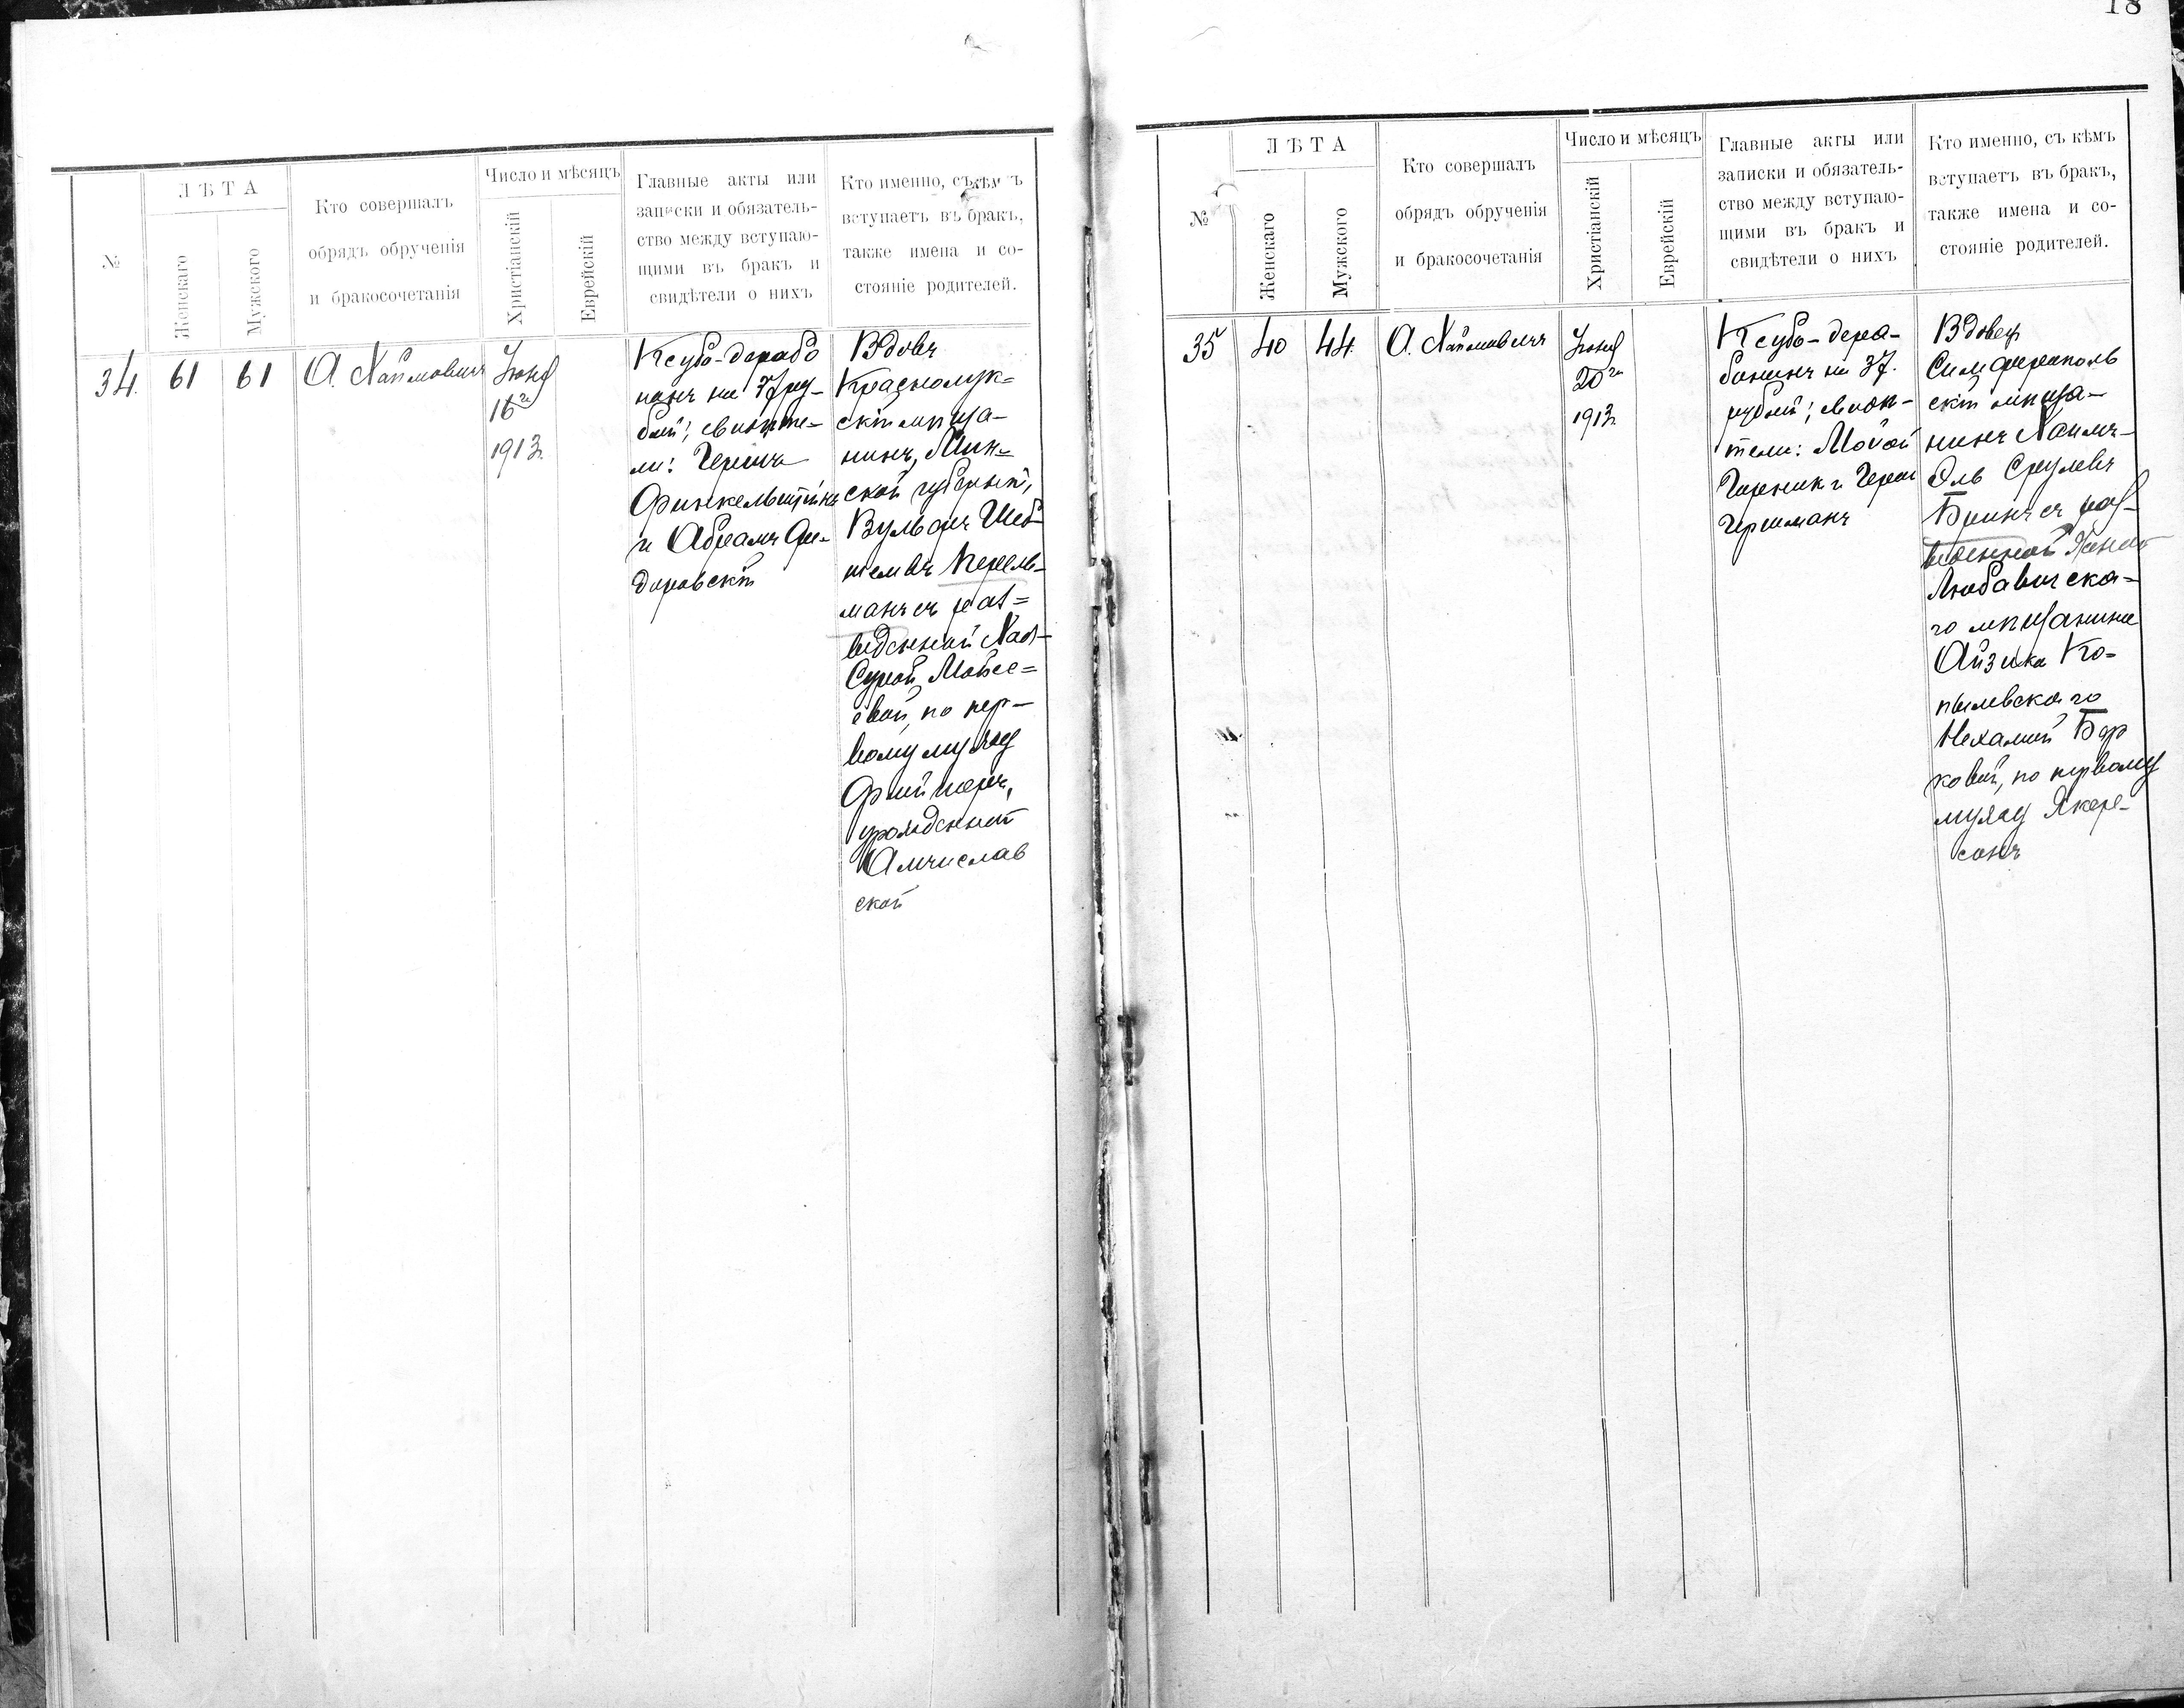 18
№
ЛѢТА
Женскаго
Мужского
Кто совершалъ
обрядъ обрученія
и бракосочетанія
Число и мѣсяцъ
Христіанскій
Еврейскій
Главные акты или
записки и обязатель-
ство между вступаю-
щими въ бракъ и
свидѣтели о нихъ
Кто именно, съ кѣмъ
вступаетъ въ бракъ,
также имена и со-
стояніе родителей.
34.
61
61
А. Хаймовичъ
Іюня
16го
1913г.
Ксубо-дерабо
нанъ на 37 ру-
блей; свидѣте-
ли: Гершъ
Финкельштейнъ
и Абрамъ
даровскій
Вдовъ
Краснолук-
скій мѣща-
нинъ, Мин-
ской губерніи,
Вульфъ Шеб-
телевъ Перель-
манъ съ раз-
веденной Хая-
Сурой Мовше-
евой, по пер-
вому мужу
урожденной
Амчислав
ской
№
ЛѢТА
Женскаго
Мужского
Кто совершалъ
обрядъ обрученія
и бракосочетанія
Число и мѣсяцъ
Христіанскій
Еврейскій
Главные акты или
записки и обязатель-
ство между вступаю-
щими въ бракъ и
свидѣтели о нихъ
Кто именно, съ кѣмъ
вступаетъ въ бракъ,
также имена и со-
стояніе родителей.
35
40
44.
А. Хаймовичъ
Іюня
20го
1913г.
Ксубо-дера-
бонинъ на 37.
рублей; свидѣ-
тели:
Гершманъ
Вдовецъ
Симферополь
скій мѣща-
нинъ Хаимъ-
Эль Срулевъ
Бринъ съ раз-
веденной женой
Любавичска-
го мѣщанина
Айзика Ко-
пылевского
Нехамой Бер
ковой, по первому
мужу Якер-
сонъ